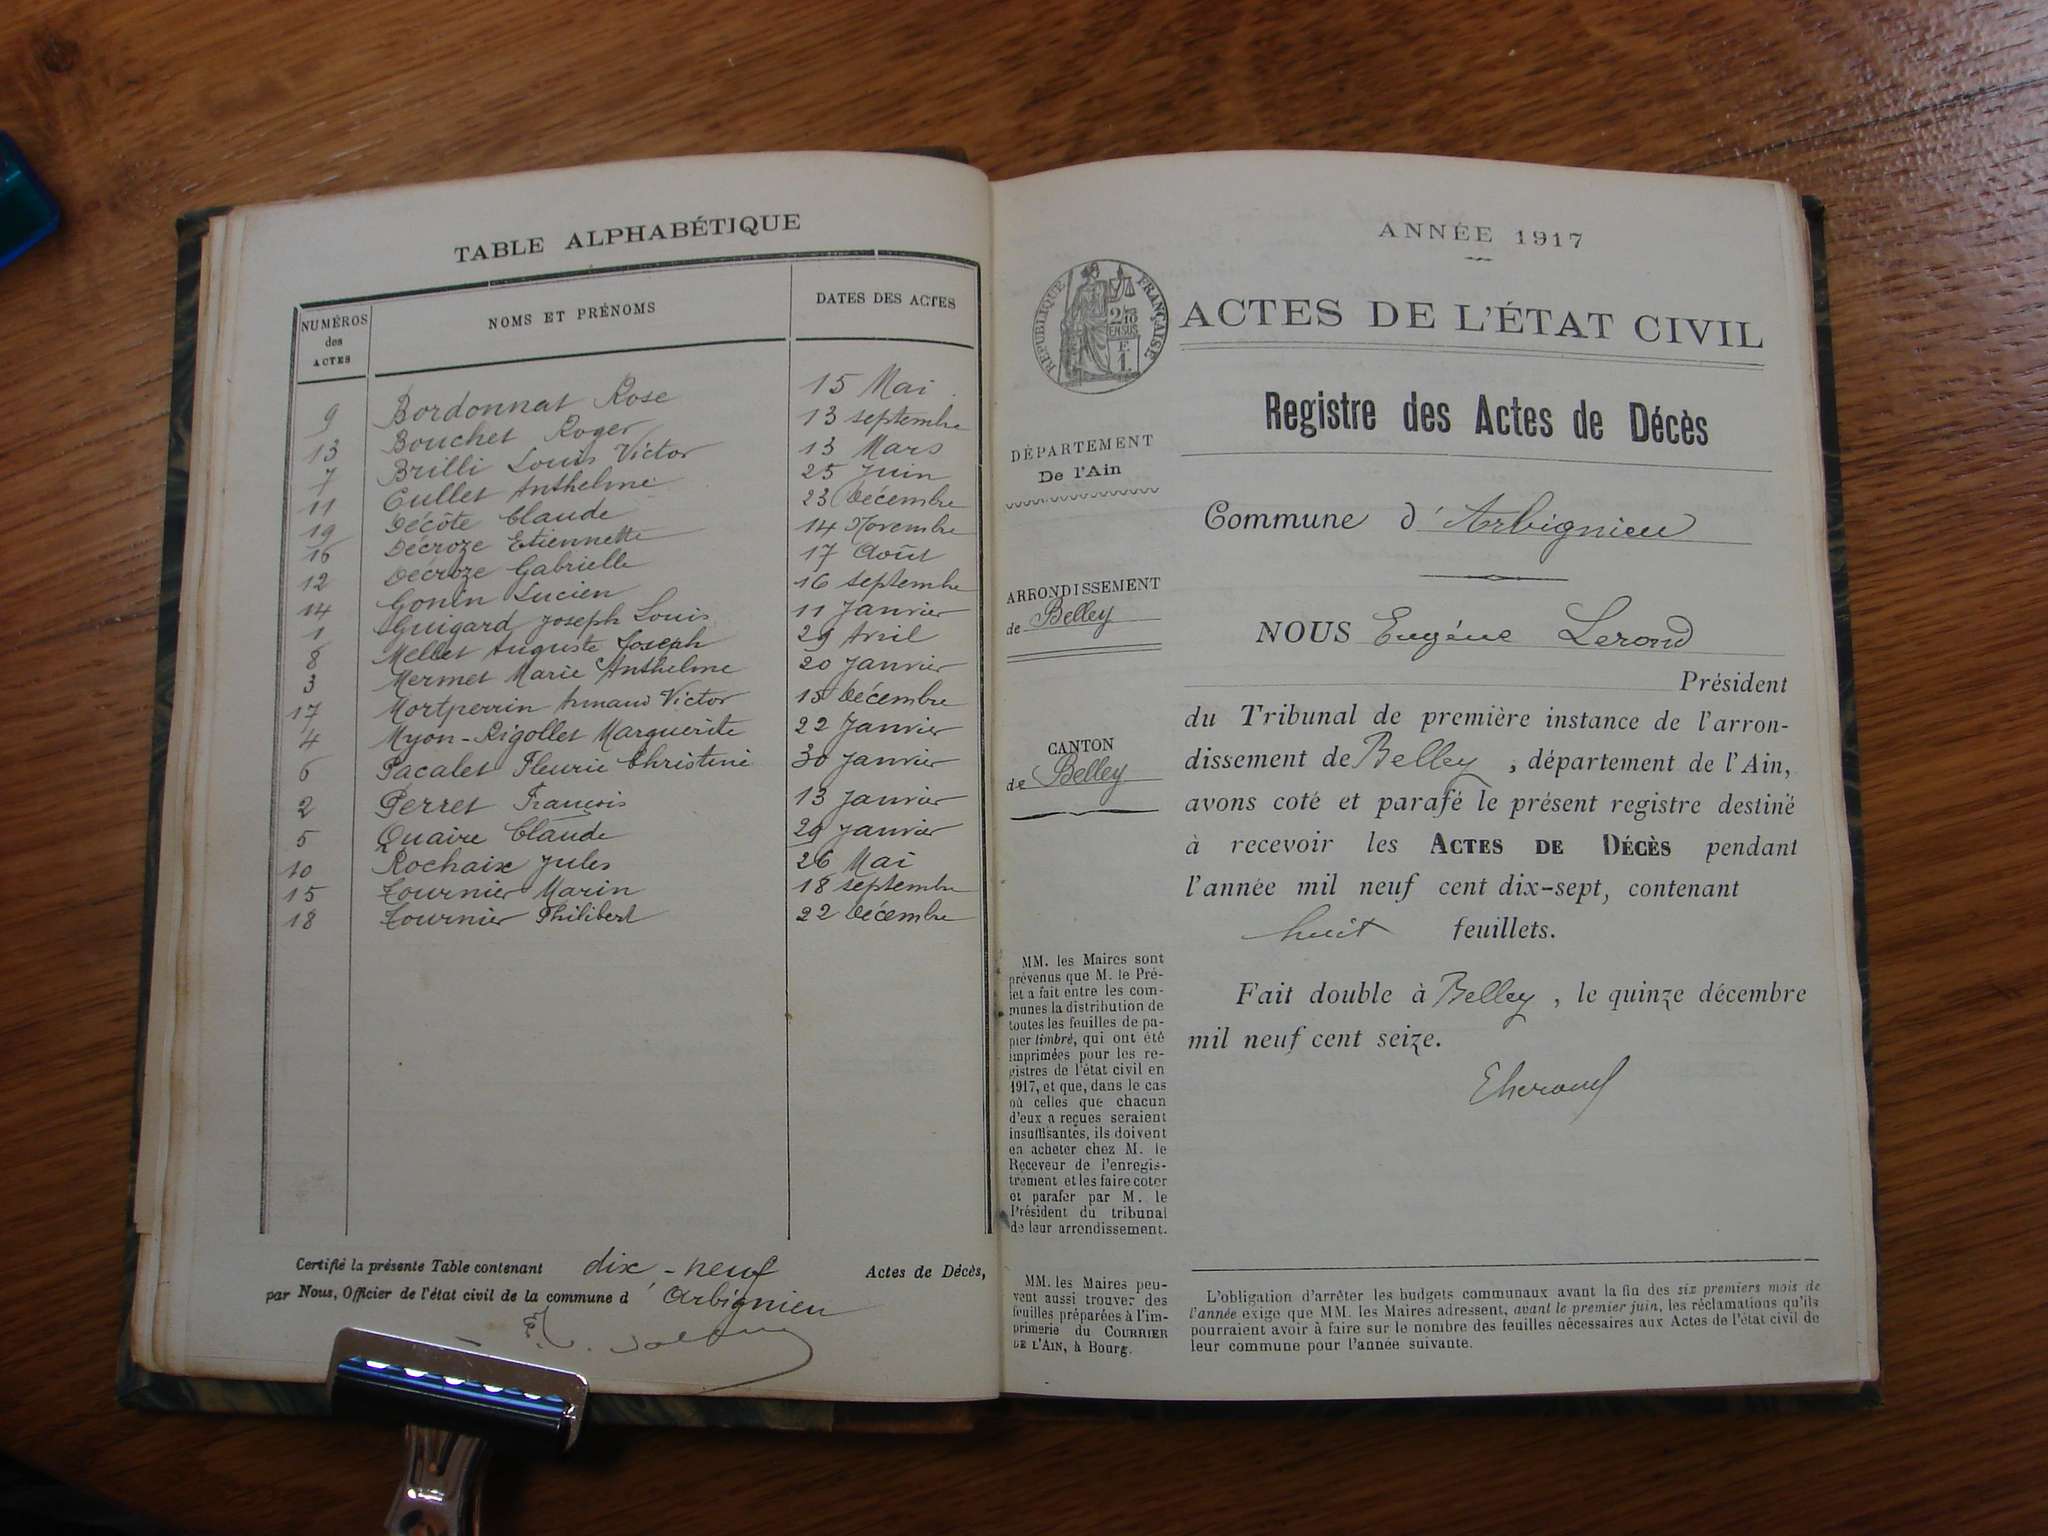 TABLE ALPHABÉTIQUE
NUMÉROS des ACTES
NOMS ET PRÉNOMS
DATES DES ACTES
9 Bordonnat Rose 15 Mai
13 Bouchet Roger 13 septembre
7 Brilli Louis Victor 13 Mars
11 Cullet Anthelme 25 Juin
19 Décôte Claude 23 Décembre
16 Décroze Etiennette 14 Novembre
12 Décroze Gabrielle 17 Août
14 Gonin Lucien 16 septembre
1 Guigard Joseph Louis 11 Janvier
8 Mellet Auguste Joseph 29 Avril
3 Mermet Marie Anthelme 20 Janvier
17 Mortperrin Armand Victor 15 Décembre
4 Myon-Rigollet Marguerite 22 Janvier
6 Pacalet Fleurie Christine 30 Janvier
2 Perret François 13 Janvier
5 Quaire Claude 29 Janvier
10 Rochaix Jules 26 Mai
15 Tournier Marin 18 septembre
18 Tournier Philibert 22 Décembre
Certifié la présente Table contenant dix-neuf Actes de Décès,
par Nous, Officier de l'état civil de la commune d'Arbignieu
ANNÉE 1917
RÉPUBLIQUE FRANÇAISE
2/10
EN SUS
F.
1.
ACTES DE L'ÉTAT CIVIL
Registre des Actes de Décès
DÉPARTEMENT
De l'Ain
Commune d'Arbignieu
ARRONDISSEMENT
de Belley
CANTON
de Belley
NOUS Eugène Lerond
Président
du Tribunal de première instance de l'arron-
dissement de Belley, département de l'Ain,
avons coté et parafé le présent registre destiné
à recevoir les ACTES DE DÉCÈS pendant
l'année mil neuf cent dix-sept, contenant
huit feuillets.
Fait double à Belley, le quinze décembre
mil neuf cent seize.
MM. les Maires sont
prévenus que M. le Pré-
fet a fait entre les com-
munes la distribution de
toutes les feuilles de pa-
pier timbré, qui ont été
imprimées pour les re-
gistres de l'état civil en
1917, et que, dans le cas
où celles que chacun
d'eux a reçues seraient
insuffisantes, ils doivent
en acheter chez M. le
Receveur de l'enregis-
trement et les faire coter
et parafer par M. le
Président du tribunal
de leur arrondissement.
MM. les Maires peu-
vent aussi trouver des
feuilles préparées à l'im-
primerie du COURRIER
DE L'AIN, à Bourg.
L'obligation d'arrêter les budgets communaux avant la fin des six premiers mois de
l'année exige que MM. les Maires adressent, avant le premier juin, les réclamations qu'ils
pourraient avoir à faire sur le nombre des feuilles nécessaires aux Actes de l'état civil de
leur commune pour l'année suivante.